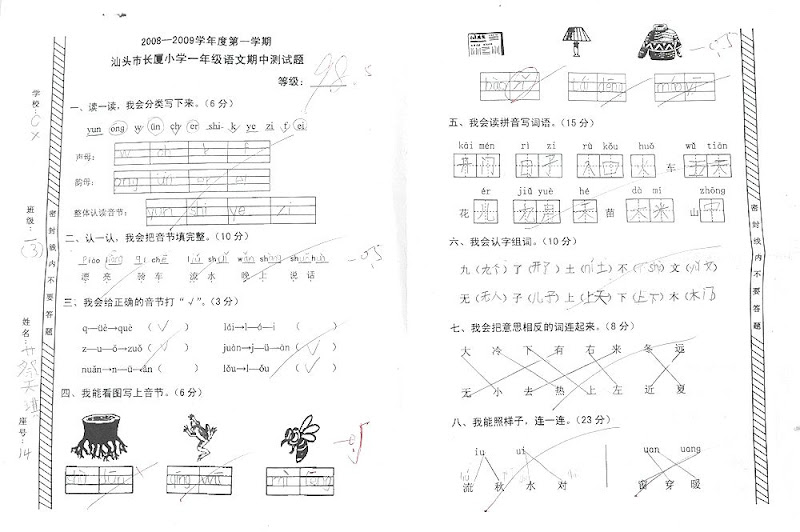 2008—2009学年度第一学期
汕头市长厦小学一年级语文期中测试题
等级：98.5
学校：
班级：(3)
姓名：
座号：14
密封线内不要答题
一、读一读，我会分类写下来。（6分）
yun ong w ün ch er shi k ye zi f ei
声母：w ch k f
韵母：ong ün er ei
整体认读音节：yun shi ye zi
二、认一认，我会把音节填完整。（10分）
漂亮 骑车 流水 晚上 说话
三、我会给正确的音节打“√”。（3分）
q—üè→què （√） lói→l—ó—i （ ）
z—u—ǒ→zuǒ （√） juàn→j—ü—àn （√）
nuǎn→n—ü—ǎn （ ） lǒu→l—ǒu （√）
四、我能看图写上音节。（6分）
-0.5
五、我会读拼音写词语。（15分）
kāi mén rì zi rù kǒu huǒ wǔ tiān
开门 日子 入口 火 车 五天
ér jiǔ yuè hé dà mǐ zhōng
花 儿 九月 禾 苗 大米 山 中
六、我会认字组词。（10分）
九（九个）了（开了）土（ní土）不（不shì）文（）
无（无人）子（儿子）上（上天）下（上下）木（木门）
七、我会把意思相反的词连起来。（8分）
大 冷 下 有 右 来 冬 远
无 小 去 热 上 左 近 夏
八、我能照样子，连一连。（23分）
iu ui uan uang
流 秋 水 对 窗 穿 暖
密封线内不要答题